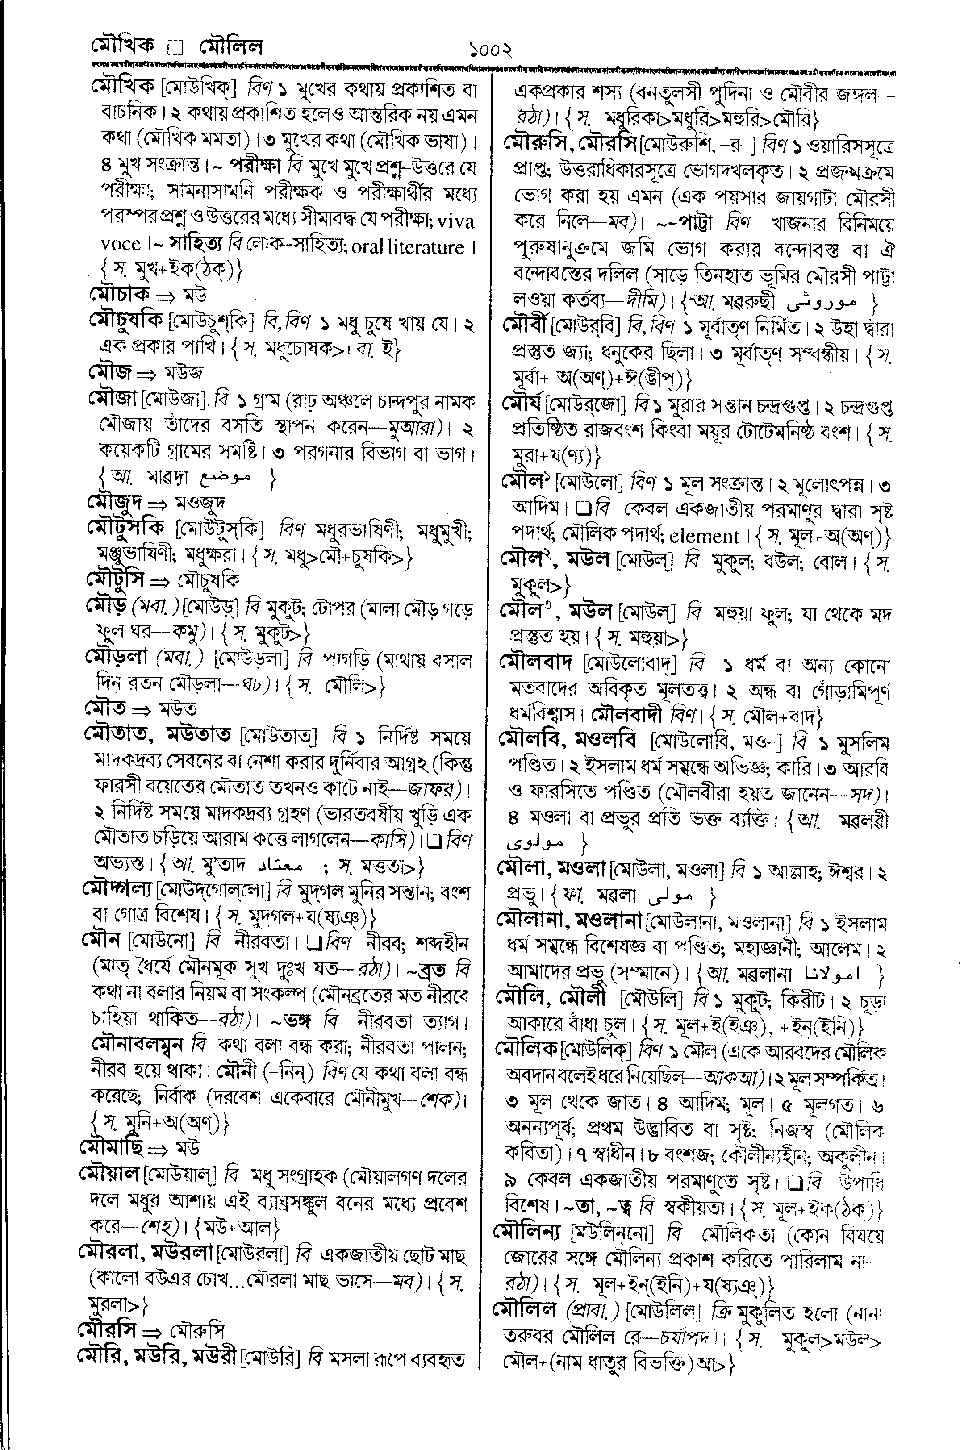 মৌখিক □ মৌলিল
১০০২
মৌখিক [মোউখিক্] বিণ ১ মুখের কথায় প্রকাশিত বা
বাচনিক। ২ কথায় প্রকাশিত হলেও আন্তরিক নয় এমন
কথা (মৌখিক মমতা)। ৩ মুখের কথা (মৌখিক ভাষা)।
৪ মুখ সংক্রান্ত। ~ পরীক্ষা বি মুখে মুখে প্রশ্ন-উত্তরে যে
পরীক্ষা; সামনাসামনি পরীক্ষক ও পরীক্ষার্থীর মধ্যে
পরস্পর প্রশ্ন ও উত্তরের মধ্যে সীমাবদ্ধ যে পরীক্ষা; viva
voce। ~ সাহিত্য বি লোক-সাহিত্য; oral literature।
{স. মুখ+ইক(ঠক)}
মৌচাক ⇒ মউ
মৌচুষকি [মোউচুশ্‌কি] বি, বিণ ১ মধু চুষে খায় যে। ২
এক প্রকার পাখি। {স. মধুচোষক>। বা. ই}
মৌজ ⇒ মউজ
মৌজা [মোউজা] বি ১ গ্রাম (রাঢ় অঞ্চলে চান্দপুর নামক
মৌজায় তাঁদের বসতি স্থাপন করেন—মুআরা)। ২
কয়েকটি গ্রামের সমষ্টি। ৩ পরগনার বিভাগ বা ভাগ।
{আ. মাৱদ়া موضع }
মৌজুদ ⇒ মওজুদ
মৌটুসকি [মোউটুস্‌কি] বিণ মধুরভাষিণী; মধুমুখী;
মঞ্জুভাষিণী; মধুক্ষরা। {স. মধু>মৌ+চুষকি>}
মৌটুসি ⇒ মৌচুষকি
মৌড় (মবা.) [মোউড়্] বি মুকুট; টোপর (মালা মৌড় গড়ে
ফুল ঘর--কমু)। {স. মুকুট>}
মৌড়লা (মবা.) [মোউড়লা] বি পাগড়ি (মাথায় বসাল
দিন রতন মৌড়লা—ঘচ)। {স. মৌলি>}
মৌত ⇒ মউত
মৌতাত, মউতাত [মোউতাত্] বি ১ নির্দিষ্ট সময়ে
মাদকদ্রব্য সেবনের বা নেশা করার দুর্নিবার আগ্রহ (কিন্তু
ফারসী বয়েতের মৌতাত তখনও কাটে নাই—জাফর)।
২ নির্দিষ্ট সময়ে মাদকদ্রব্য গ্রহণ (ভারতবর্ষীয় খুড়ি এক
মৌতাত চড়িয়ে আরাম কত্তে লাগলেন—কাসি)। □ বিণ
অভ্যস্ত। {আ. মু'তাদ معتاد ; স. মত্ততা>}
মৌদ্গল্য [মোউদ্‌গোল্‌লো] বি মুদ্‌গল মুনির সন্তান; বংশ
বা গোত্র বিশেষ। {স. মুদগল+য(ষ্যঞ্)}
মৌন [মোউনো] বি নীরবতা। □ বিণ নীরব; শব্দহীন
(মাতৃ ধৈর্যে মৌনমূক সুখ দুঃখ যত—রঠা)। ~ব্রত বি
কথা না বলার নিয়ম বা সংকল্প (মৌনব্রতের মত নীরবে
চাহিয়া থাকিত--রঠা)। ~ভঙ্গ বি নীরবতা ত্যাগ।
মৌনাবলম্বন বি কথা বলা বন্ধ করা; নীরবতা পালন;
নীরব হয়ে থাকা। মৌনী (-নিন্) বিণ যে কথা বলা বন্ধ
করেছে; নির্বাক (দরবেশ একেবারে মৌনীমুখ--শেক)।
{স. মুনি+অ(অণ্)}
মৌমাছি ⇒ মউ
মৌয়াল [মোউয়াল্] বি মধু সংগ্রাহক (মৌয়ালগণ দলের
দলে মধুর আশায় এই ব্যাঘ্রসঙ্কুল বনের মধ্যে প্রবেশ
করে—শেহ)। {মউ+আল}
মৌরলা, মউরলা [মোউরলা] বি একজাতীয় ছোট মাছ
(কালো বউএর চোখ...মৌরলা মাছ ভাসে—মব)। {স.
মুরলা>}
মৌরসি ⇒ মৌরুসি
মৌরি, মউরি, মউরী [মোউরি] বি মসলা রূপে ব্যবহৃত
একপ্রকার শস্য (বনতুলসী পুদিনা ও মৌরীর জঙ্গল -
রঠা)। {স. মধুরিকা>মধুরি>মহুরি>মৌরি}
মৌরুসি, মৌরসি [মোউরুশি, -র-] বিণ ১ ওয়ারিসসূত্রে
প্রাপ্ত; উত্তরাধিকারসূত্রে ভোগদখলকৃত। ২ প্রজন্মক্রমে
ভোগ করা হয় এমন (এক পয়সার জায়গাটা মৌরসী
করে নিলে—মব)। ~-পাট্টা বিণ খাজনার বিনিময়ে
পুরুষানুক্রমে জমি ভোগ করার বন্দোবস্ত বা ঐ
বন্দোবস্তের দলিল (সাড়ে তিনহাত ভূমির মৌরসী পাট্টা
লওয়া কর্তব্য—দীমি)। {আ. মৱরুছী موروثى }
মৌর্বী [মোউর্‌বি] বি, বিণ ১ মূর্বাতৃণ নির্মিত। ২ উহা দ্বারা
প্রস্তুত জ্যা; ধনুকের ছিলা। ৩ মূর্বাতৃণ সম্বন্ধীয়। {স.
মূর্বা+ অ(অণ্)+ঈ(ঙীপ্)}
মৌর্য [মোউর্‌জো] বি ১ মুরার সন্তান চন্দ্রগুপ্ত। ২ চন্দ্রগুপ্ত
প্রতিষ্ঠিত রাজবংশ কিংবা ময়ূর টোটেমনিষ্ঠ বংশ। {স.
মুরা+য(ণ্য)}
মৌল১ [মোউলো] বিণ ১ মূল সংক্রান্ত। ২ মূলোৎপন্ন। ৩
আদিম। □ বি কেবল একজাতীয় পরমাণুর দ্বারা সৃষ্ট
পদার্থ; মৌলিক পদার্থ; element। {স. মূল+অ(অণ্)}
মৌল২, মউল [মোউল্] বি মুকুল; বউল; বোল। {স.
মুকুল>}
মৌল৩, মউল [মোউল্] বি মহুয়া ফুল; যা থেকে মদ
প্রস্তুত হয়। {স. মহুয়া>}
মৌলবাদ [মোউলোবাদ্] বি ১ ধর্ম বা অন্য কোনো
মতবাদের অবিকৃত মূলতত্ত্ব। ২ অন্ধ বা গোঁড়ামিপূর্ণ
ধর্মবিশ্বাস। মৌলবাদী বিণ। {স. মৌল+বাদ}
মৌলবি, মওলবি [মোউলোবি, মও-] বি ১ মুসলিম
পণ্ডিত। ২ ইসলাম ধর্ম সম্বন্ধে অভিজ্ঞ; কারি। ৩ আরবি
ও ফারসিতে পণ্ডিত (মৌলবীরা হয়ত জানেন--সদ)।
৪ মওলা বা প্রভুর প্রতি ভক্ত ব্যক্তি। {আ. মৱলৱী
مولوى }
মৌলা, মওলা [মোউলা, মওলা] বি ১ আল্লাহ; ঈশ্বর। ২
প্রভু। {ফা. মৱলা مولى }
মৌলানা, মওলানা [মোউলানা, মওলানা] বি ১ ইসলাম
ধর্ম সম্বন্ধে বিশেষজ্ঞ বা পণ্ডিত; মহাজ্ঞানী; আলেম। ২
আমাদের প্রভু (সম্মানে)। {আ. মৱলানা مولانا }
মৌলি, মৌলী [মৌউলি] বি ১ মুকুট; কিরীট। ২ চূড়া
আকারে বাঁধা চুল। {স. মূল+ই(ইঞ্), +ইন(ইনি)}
মৌলিক [মোউলিক্] বিণ ১ মৌল (একে আরবদের মৌলিক
অবদান বলেই ধরে নিয়েছিল—আকআ)। ২ মূল সম্পর্কিত।
৩ মূল থেকে জাত। ৪ আদিম; মূল। ৫ মূলগত। ৬
অনন্যপূর্ব; প্রথম উদ্ভাবিত বা সৃষ্ট; নিজস্ব (মৌলিক
কবিতা)। ৭ স্বাধীন। ৮ বংশজ; কৌলীন্যহীন; অকুলীন।
৯ কেবল একজাতীয় পরমাণুতে সৃষ্ট। □ বি উপাধি
বিশেষ। ~তা, ~ত্ব বি স্বকীয়তা। {স. মূল+ইক(ঠক্)}
মৌলিন্য [মউলিন্‌নো] বি মৌলিকতা (কোন বিষয়ে
জোরের সঙ্গে মৌলিন্য প্রকাশ করিতে পারিলাম না-
রঠা)। {স. মূল+ইন্(ইনি)+য(ষ্যঞ্)}
মৌলিল (প্রাবা.) [মোউলিল্] ক্রি মুকুলিত হলো (নানা
তরুবর মৌলিল রে—চর্যাপদ)। {স. মুকুল>মউল>
মৌল+(নাম ধাতুর বিভক্তি) আ>}